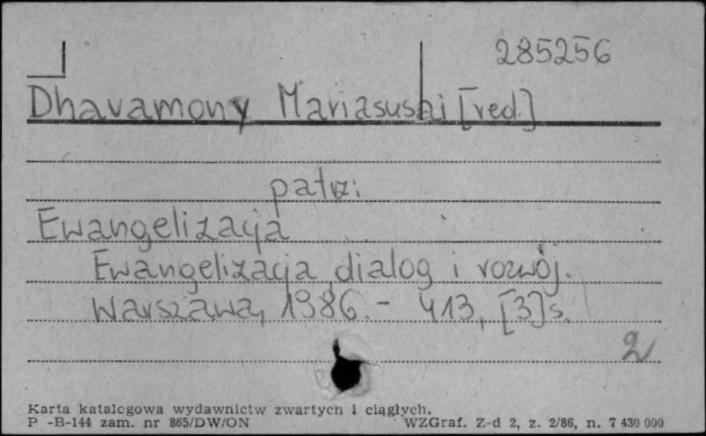 285256
Dhavamony Mariasusai [red.]
patrz:
Ewangelizacja
Ewangelizacja, dialog i rozwój.
Warszawa, 1986. - 413, [3] s.
2
Karta katalogowa wydawnictw zwartych i ciągłych.
P -B-144 zam. nr 865/DW/ON WZGraf. Z-d 2, z. 2/86, n. 7 430 000